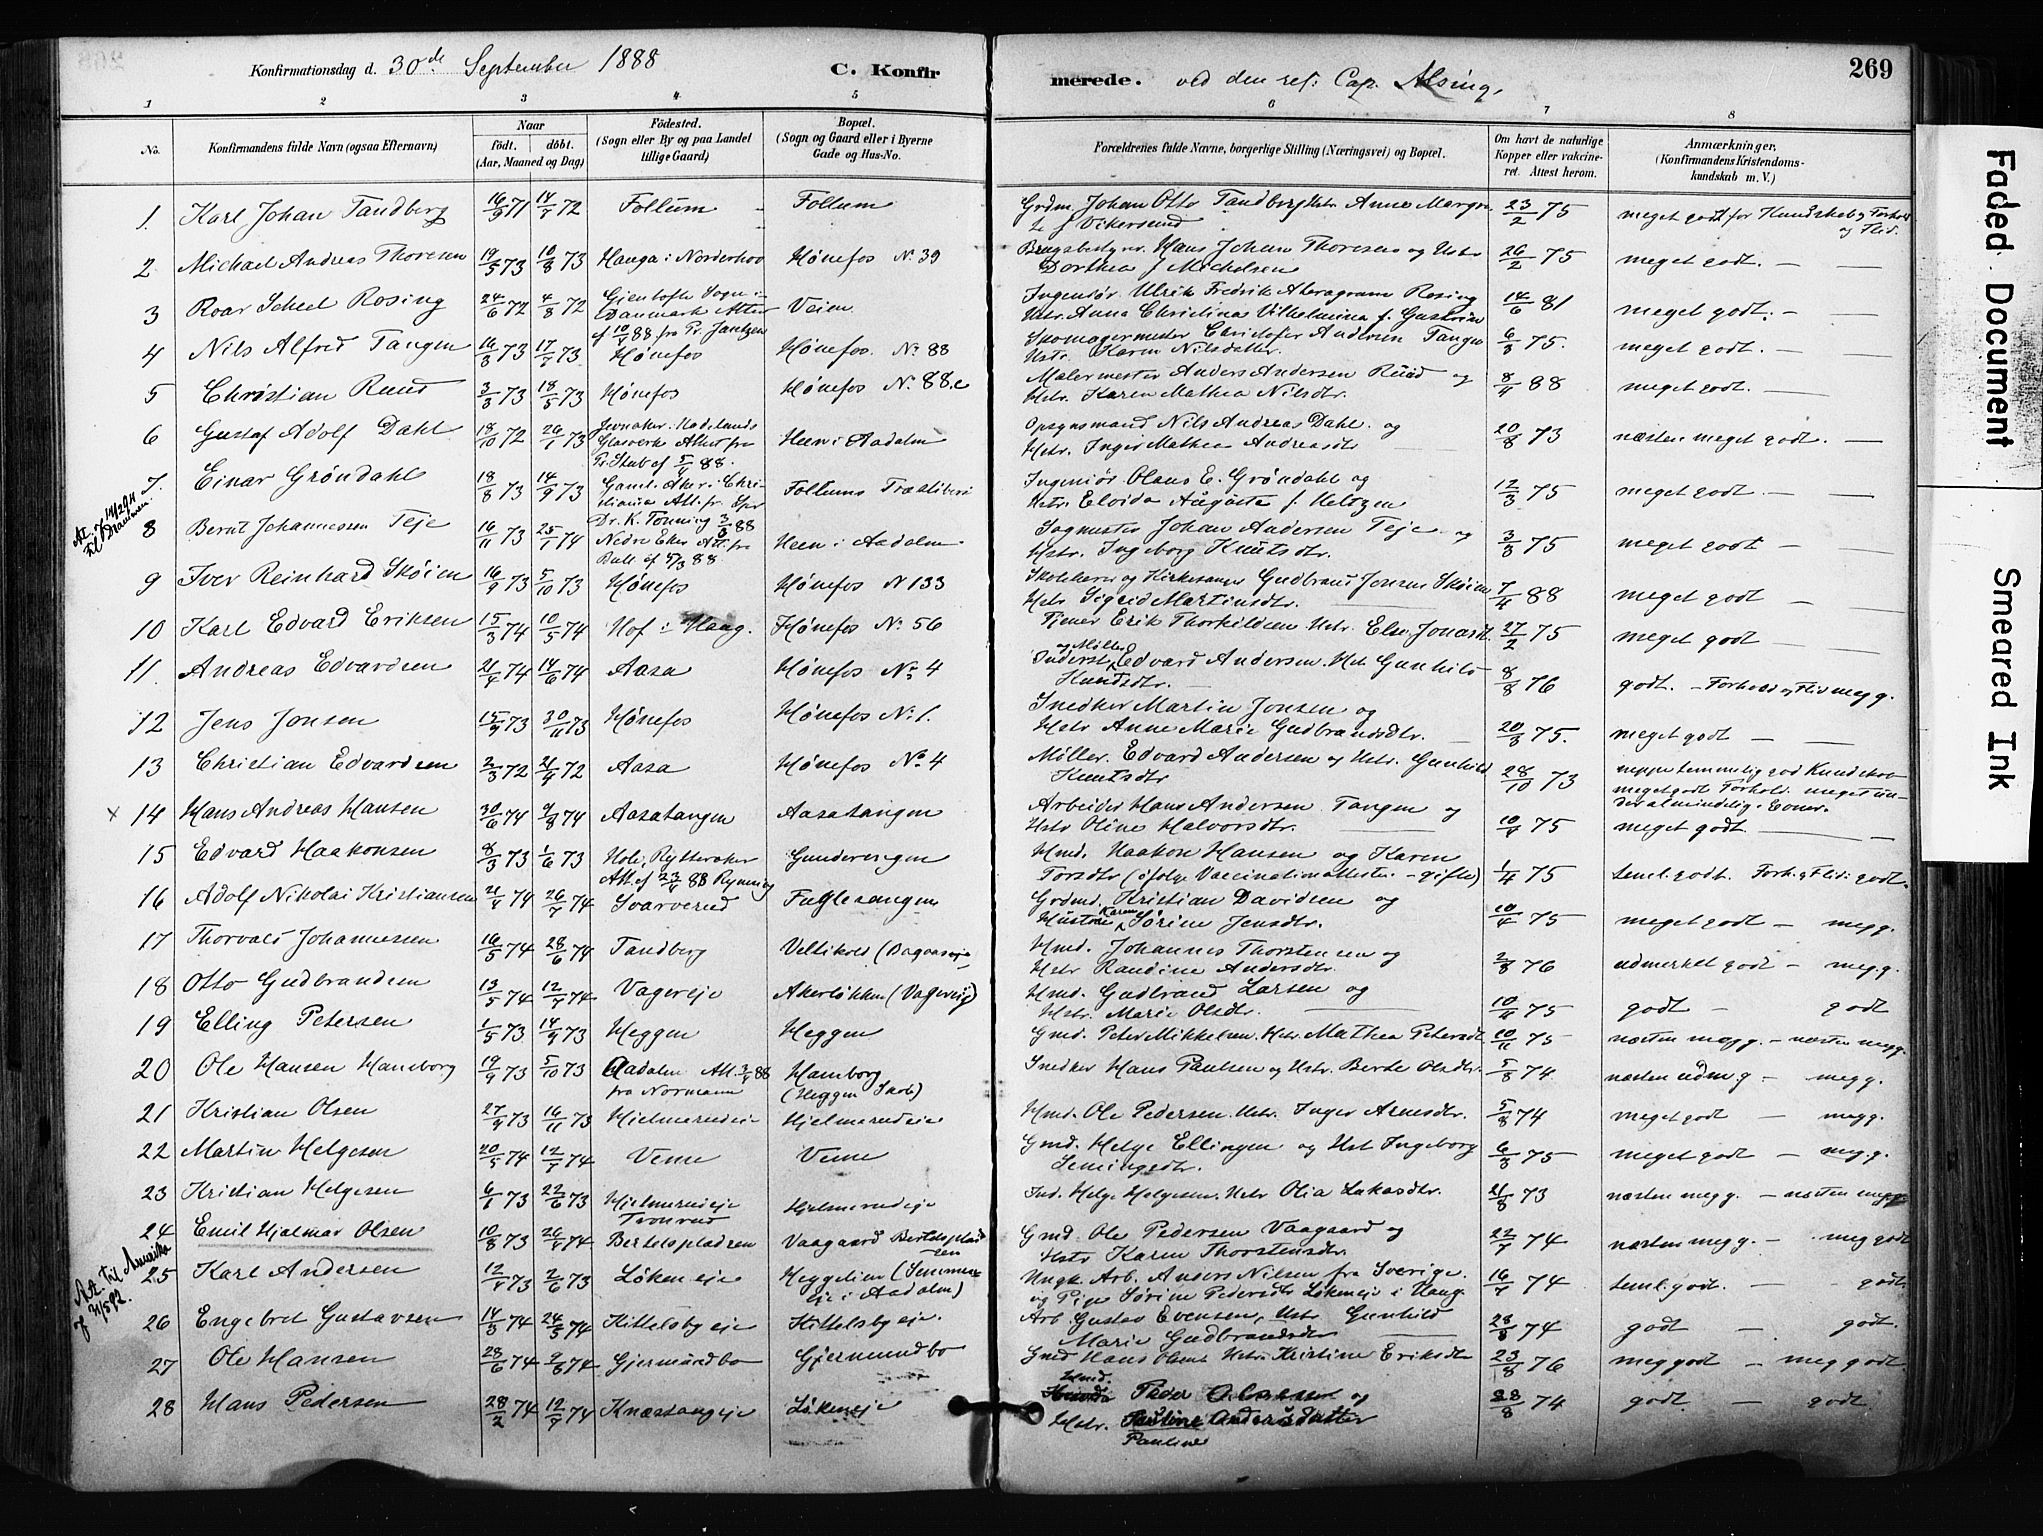 Konfirmationsdag d. 30de September 1888 C. Konfirmerede. ved den res: Cap. Alsing, 269
1 2 3 4 5 6 7 8
No. Konfirmandens fulde Navn (ogsaa Efternavn) Naar født. døbt. (Aar, Maaned og Dag) Fødested. (Sogn eller By og paa Landet tillige Gaard) Bopæl. (Sogn og Gaard eller i Byerne Gade og Hus-No. Forældrenes fulde Navne, borgerlige Stilling (Næringsvei) og Bopæl. Om havt de naturlige Kopper eller vakcineret. Attest herom. Anmærkninger, (Konfirmandens Kristendomskundskab m. V.)
1. Karl Johan Tandberg 16/9 71 14/7 72 Follum Follum Grdm. Johan Otto Tandberg Hstr. Anne f Vikersund 23/2 75 meget godt for Kundskab, Forhold og Flid.
2 Michael Andreas Thoresen 19/5 73 10/8 73 Hauga i Norderhov Hønefos No 39 Brugsbestyrer Hans Johan Thoresen og Hstr Dorthea f Michelsen 26/2 75 meget godt. — —
3 Roar Scheel Rosing 24/6 72 4/8 72 Gjentofte Sogn i Danmark Attest af 10/4 88 fra Pr. Jantzen Veien Ingeniør Ulrik Fredrik Rosing Hstr. Anna Christina Vilhelmina f. 14/6 81 meget godt. — —
4 Nils Alfred Tangen 16/3 73 17/7 73 Hønefos Hønefos. No 88 Skomagermester Christofer Andersen Tangen Hstr. Karen Nilsdatter. 6/3 75. meget godt. — —
5 Christian Ruud 3/3 73 18/5 73 Hønefos Hønefos No 88.c Malermester Anders Andersen Ruud og Hstr. Karen Mathea Nilsdtr. 8/4 88 meget godt. —
6 Gustaf Adolf Dahl 18/10 72 26/1 73 Jevnaker. Hadelands Glasværk Attest fra Pr. Stub af 5/4 88. Heen i Aadalen Opsynsmand Nils Andreas Dahl. og Hstr. Inger Mathea Andreasdtr 20/8 73 næsten meget godt. —
7. Einar Grøndahl 18/8 73 14/9 73 Gaml. Aker i Christiania Att. fr. Spr Dr. K. Tønning 3/3 88 Follums Træsliberi Ingeniør Olaus E. Grøndahl og Hstr. Elvida Augusta f. Heltzen 12/3 75 meget godt. — —
At. 7 14/2 94 til Drammen
8 Bernt Johannesen Teje 16/11 73 25/1 74 Nedre Eker Att. fra Dall af 5/3 88 Heen i Aadalen Sagmester Johan Andersen Teje og Hstr. Ingeborg Knutsdtr. 3/3 75 meget godt —
9 Iver Reinhard Skøien 16/9 73 5/10 73 Hønefos Hønefos N 133 Skolelærer og Kirkesanger Gudbrand Jensen Skøien Hstr Sigrid Martinsdtr. 7/4 88 meget godt —
10 Karl Edvard Eriksen 15/3 74 10/5 74 Hof i Haug. Hønefos No 56 Tjener Erik Thorkildsen Hstr. Else Jonsdt. 27/2 75 meget godt —
11. Andreas Edvardsen 21/4 74 14/6 74 Aasa Hønefos No 4 Inderst og Møller Edvard Andersen. Hst. Gunhild Knutsdtr. 8/8 76 godt. — Forhold og Flid meg g.
12 Jens Jonsen 15/9 73 30/11 73 Hønefos Hønefos No 1. Snedker Martin Jonsen og Hstr Anne Marie Gudbrandsdtr. 20/3 75. meget godt — —
13 Christian Edvardsen 2/3 72 21/4 72 Aasa Hønefos No 4 Møller. Edvard Andersen og Hstr. Gunhild Knutsdtr 28/10 73 neppe temmelig god Kundskab meget godt Forhold. meget under almindelig Evner.
× 14 Hans Andreas Hansen 30/6 74 9/8 74 Aasatangen Aasatangen Arbeider Hans Andersen Tangen og Hstr Oline Halvorsdtr. 10/4 75 meget godt. — —
15 Edvard Haakonsen 8/3 73 1/6 73 Hole, Rytteraker Att. af 23/4 88 Gundersegen Hmd. Haakon Hansen og Karen Torsdtr (ifølge Vaccinationsattesten — gifte) 1/4 75 teml. godt. Forh. & Flid: godt.
16 Adolf Nikolai Kristiansen 21/4 74 26/7 74 Svarverud Fuglesangen Grdmd. Kristian Davidsen og Hustru Karen Sørine Jensdtr. 10/4 75 meget godt — meg g.
17 Thorvald Johannesen 16/5 74 28/6 74 Tandberg Veltikold Hmd. Johannes Thorstensen og Hstr Randine Andersdtr. 2/8 76 udmerket godt — meg g.
18 Otto Gudbrandsen 13/5 74 12/7 74 Vagereje Akerløkken (Vagereje) Hmd. Gudbrand Larsen og Hstr. Marie Olsdtr. 10/4 75 godt — godt
19 Elling Petersen 1/5 73 14/9 73 Heggen Heggen Gmd. Peter Mikkelsen. Hstr. Mathea Petersdt. 10/11 75 næsten meg g. — næsten meg g.
20 Ole Hansen Hamborg 19/9 73 5/10 73 Aadalen Att. 3/4 88 fra Normann Hamborg (Heggen) Snedker Hans Paulsen og Hstr. Berte Olsdtr. 5/8 74 næsten udm g — meg g.
21 Kristian Olsen 27/9 73 16/11 73 Hjelmerudeie Hjelmerudeie Hmd. Ole Pedersen. Hstr. Inger Arnesdtr. 5/8 74 meget godt — meg g.
22 Martin Helgesen 20/5 74 12/7 74 Veme Veme Gmd. Helge Ellingsen og Hst Ingeborg Semingsdtr. 6/3 75 meget godt — meg g.
23 Kristian Helgesen 6/1 73 22/6 73 Hjelmerudeje Hjelmerudeje Ind. Helge Helgesen. Hstr Olia Lukasdtr. 21/8 73 næsten meg g. — næsten meg g.
24 Emil Hjalmar Olsen 10/8 73 26/4 74 Tronrud Bertelspladsen Vaagaard Bertelspladsen Gmd. Ole Pedersen Vaagaard og Hstr Karen Thorstensdtr. 22/7 74 næsten meg g. — meg godt
At. til Amerika
25 Karl Andersen 12/4 73 2/6 73 Løkeneje Heggelien (Semmeneje i Aadalen) Ungk. Arb. Anders Nilsen fra Sverige. og Pige Sørine Pedersdtr Løkeneje i Haug. 16/7 74 teml. godt. godt.
26 Engebret Gustavsen 14/3 74 24/5 74 Kittelsbyeje Kittelsbyeje. Arb Gustav Evensen, Hstr Gunhild Marie Gudbrandsdtr 28/8 74 godt — godt.
27 Ole Hansen 28/6 74 9/8 74 Gjermundbo Gjermundbo Gmd Hans Olsen Hstr. Kristine Eriksdtr 23/8 76 meg godt — meg godt.
28 Hans Pedersen 28/2 74 12/7 74 Knæstangeje Løkeneje Hmd. Peder og Hstr. Pauline Andersdatter Pauline 28/8 74 godt. godt.
Faded Document
Smeared Ink